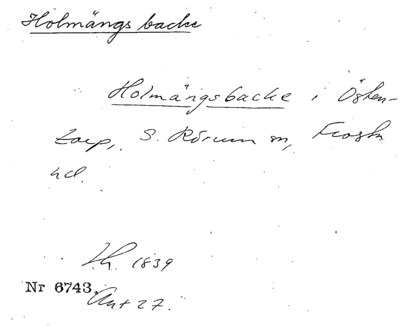 Holmängs backe
Holmängsbacke i Östen-
torp, S. Rörum sn, Frosta
hd.
Lh. 1839
Nr 6743.
Ant 27.